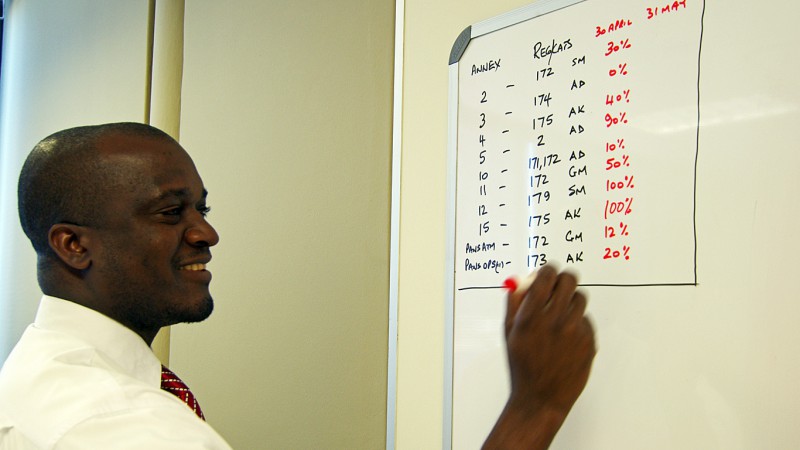 ANNEX REG/CATS 30 APRIL 31 MAY
2 - 172 SM 30%
3 - 174 AD 0%
4 - 175 AK 40%
5 - 2 AD 90%
10 - 171,172 AD 10%
11 - 172 GM 50%
12 - 179 SM 100%
15 - 175 AK 100%
PANS ATM - 172 GM 12%
PANS OPS - 173 AK 20%